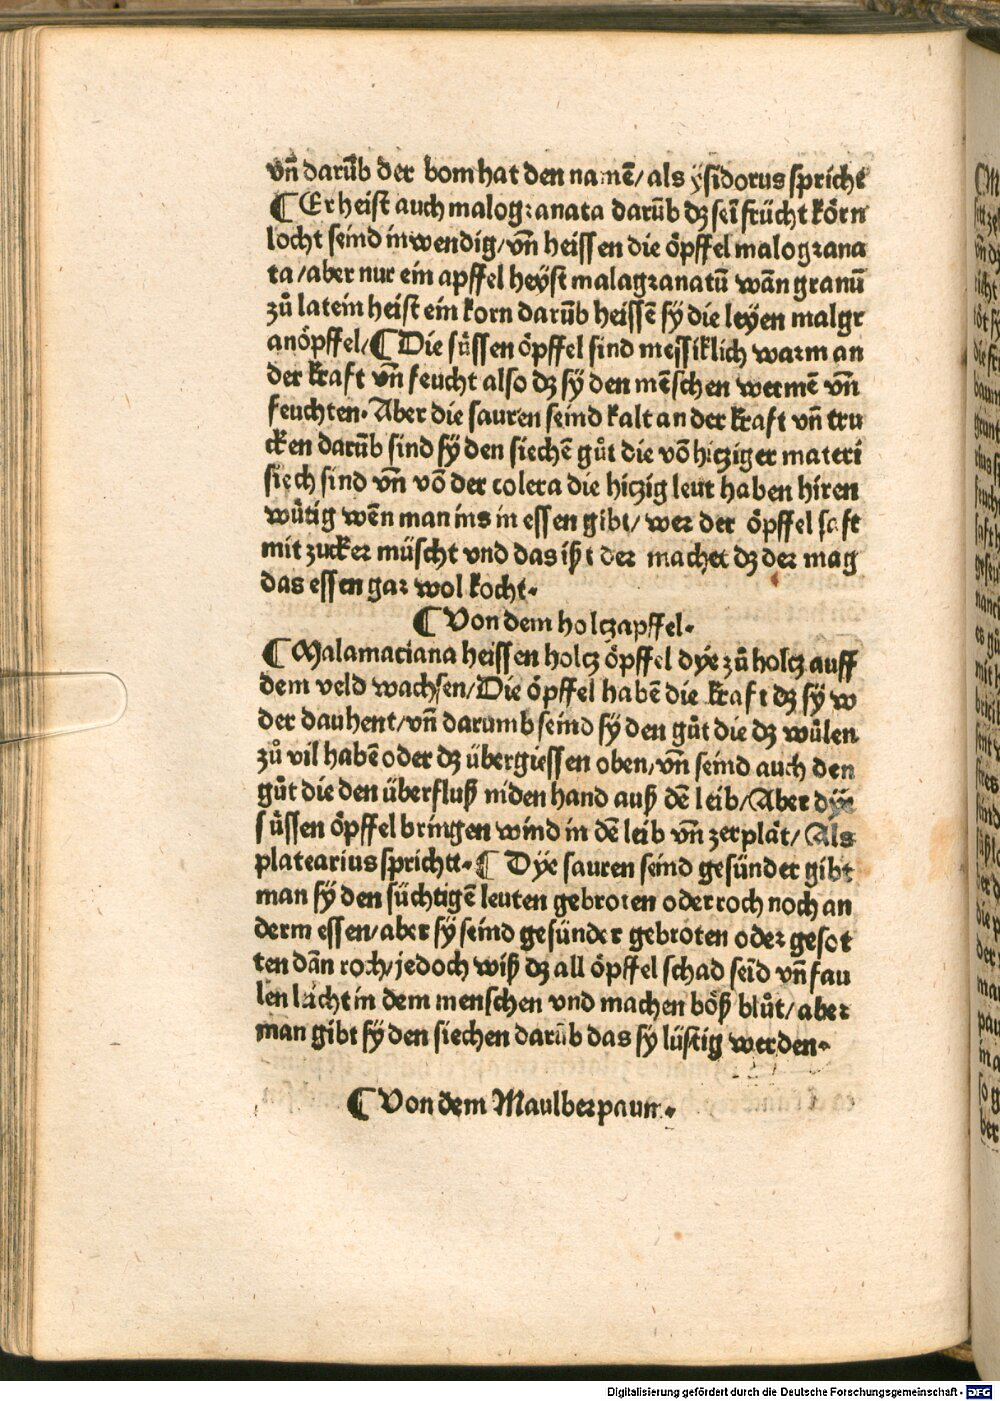 vñ darũb der bom hat den namẽ/ als ÿsidorus spricht
¶ Er heist auch malogranata darũb dz seĩ frücht körn
locht seind inwendig/ vñ heissen die öpffel malograna
ta/ aber nur ein apffel heÿst malagranatũ wãn granũ
zů latein heist ein korn darũb heissẽ sÿ die leÿen malgr
anöpffel/ ¶ Die sůssen öpffel sind messiklich warm an
der kraft vñ feucht also dz sÿ den mẽschen wermẽ vñ
feuchten. Aber die sauren seind kalt an der kraft vñ tru
cken darũb sind sÿ den siechẽ gůt die võ hicziger materi
siech sind vñ võ der colera die hiczig leut haben hiren
wůtig wẽn man ins in essen gibt/ wer der öpffel saft
mit zucker müscht vnd das ißt der machet dz der mag
das essen gar wol kocht.
¶ Von dem holczapffel.
¶ Malamaciana heissen holcz öpffel dÿe zů holcz auff
dem veld wachsen/ Die öpffel habẽ die kraft dz sÿ w
der dauhent/ vñ darumb seind sÿ den gůt die dz wůlen
zů vil habẽ oder dz übergiessen oben/ vñ seind auch den
gůt die den überfluß niden hand auß dẽ leib/ Aber dÿe
sůssen öpffel bringen wind in dẽ leib vñ zerplãt/ Als
platearius sprichtt. ¶ Dÿe sauren seind gesünder gibt
man sÿ den süchtigẽ leuten gebroten oder roch noch an
derm essen/ aber sÿ seind gesünder gebroten oder gesot
ten dãn roch/ jedoch wiß dz all öpffel schad seĩd vñ fau
len lächt in dem menschen vnd machen böß blůt/ aber
man gibt sÿ den siechen darũb das sÿ lüstig werden.
¶ Von dem Maulberpaum.
Digitalisierung gefördert durch die Deutsche Forschungsgemeinschaft - DFG